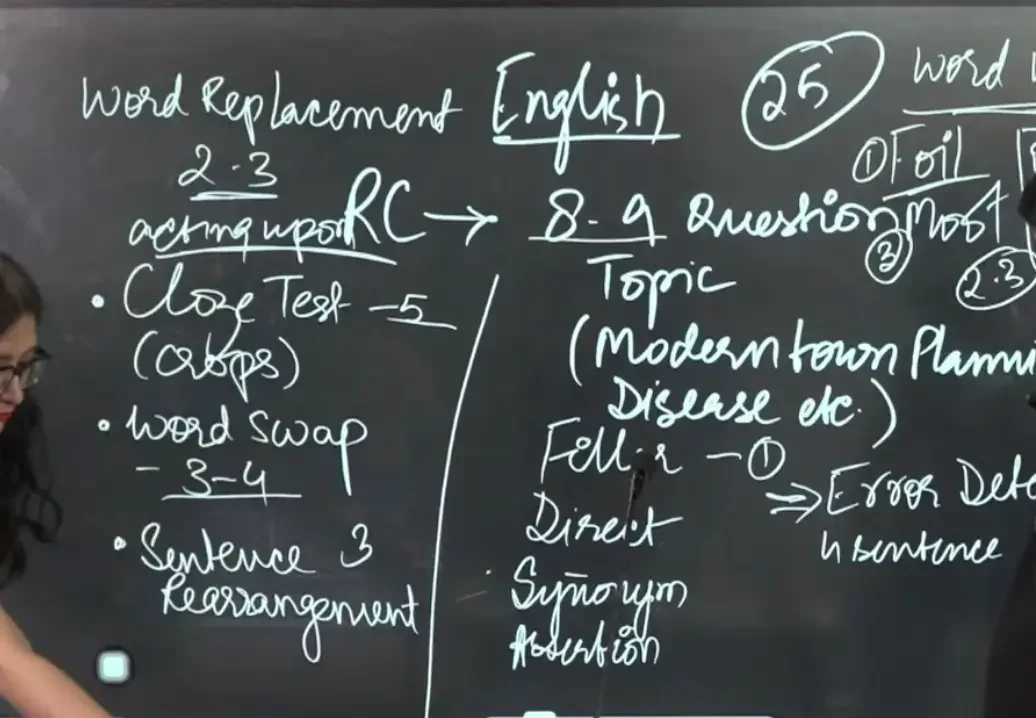 English
25
Word
Word Replacement
2-3
acting upon
RC → 8-9 Question
① Foil
③ Most
2-3
• Cloze Test - 5
(Crops)
• Word Swap
- 3-4
• Sentence 3
Rearrangement
Topic
(Modern town Planni
Disease etc.)
Filler - ①
Direct
Synonym
Assertion
⇒ Error Dete
4 sentence